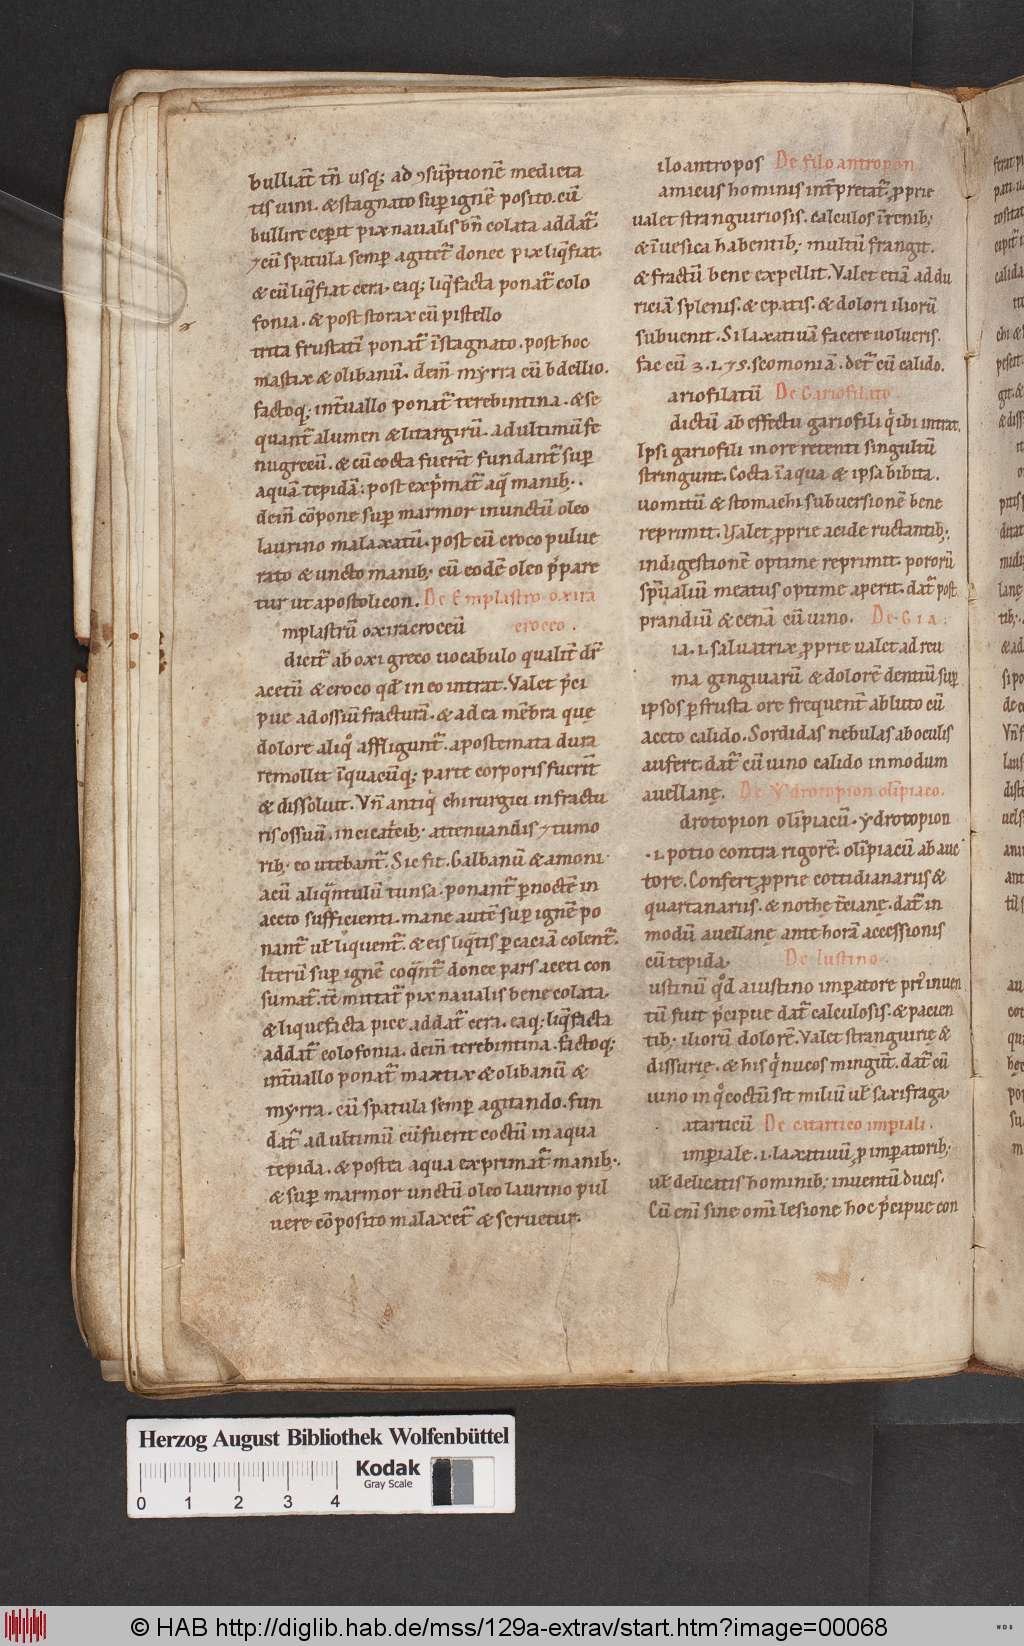 bulliat̄ tn̄ usq; ad ꝯsūptionē medieta
tis uini. & stagnato suꝑ ignē posito. cū
bullire cepīt pix naualis bn̄ colata addat᷑.
⁊ cū spatula semꝑ agitet᷑ donec pix liq̄fiat.
& cū liq̄fiat cera. eaq; liq̄facta ponat᷑ colo
fonia. & post storax cū pistello
trita frustatī ponat᷑ ī stagnato. post hoc
mastix & olibanū. dein̄ myrra cū bdellio.
factoq; int̄uallo ponat᷑ terebintina. & se
quant᷑ alumen & litargirū. ad ultimū fe
nugrecū. & cū cocta fuerīt fundant᷑ suꝑ
aquā tepidā; post exp̄mat᷑ aq̄ manib;.
dein̄ cōpone suꝑ marmor inunctū oleo
laurino malaxatū. post cū croco pulue
rato & uncto manib; cū eodē oleo p̄pare
tur ut apostolicon. De Emplastro oxira
mplastrū oxira croceū croceo.
dicit᷑ ab oxi greco uocabulo qualit̄ dr̄
acetū & croco qd̄ in eo intrat. Valet p̄ci
pue ad ossiū fracturā. & ad ea mēbra quę
dolore aliqͦ affligunt᷑. apostemata dura
remollit ī quacūq; parte corporis fuerīt
& dissoluit. Vn̄ antiqͥ chirurgici in fractu
ris ossuū. in cicatcib; attenuandis ⁊ tumo
rib; eo utebant᷑. Sic fit. Galbanū & amoni
acū aliq̄ntulū tunsa. ponant᷑ ꝑ noctē in
aceto sufficienti. mane autē suꝑ ignē po
nant᷑ ut̄ liquent᷑. & eis liq̄tis ꝑ caciā colent᷑.
Iterū suꝑ ignē coq̄nt᷑ donec pars aceti con
sumat᷑. tē mittat᷑ pix naualis bene colata.
& liquefacta pice addat᷑ cera. eaq; liq̄facta
addat᷑ colofonia. dein̄ terebintina. factoq;
int̄uallo ponat᷑ maxtix & olibanū &
myrra. cū spatula semꝑ agitando. fun
dat᷑ ad ultimū cū fuerit coctū in aqua
tepida. & postea aqua exprimat᷑ manib;.
& suꝑ marmor unctū oleo laurino pul
uere cōposito malaxet᷑ & seruetur.
iloantropos De filoantropon
amicus hominis int̄pretat᷑. ꝓprie
ualet stranguiriosis. calculos ī renib;
& ī uesica habentib; multū frangit.
& fractū bene expellit. Valet etiā ad du
riciā splenis. & epatis. & dolori iliorū
subuenit. Si laxatiuā facere uolueris.
fac cū ʒ. i. ⁊ s. scomoniā. det᷑ cū calido.
ariofilatū De Gariofilato
dictū ab effectu gariofili qͥ ibi intrat.
Ipsi gariofili in ore retenti singultū
stringunt. Cocta ī aqua & ipsa bibita.
uomitū & stomachi subuersionē bene
reprimit. Valet ꝓprie acide ructantib;.
indigestionē optime reprimit. pororū
spūaliū meatus optime aperit. dat᷑ post
prandiū & cenā cū uino. De Gia.
ia. i. saluatrix ꝓprie ualet ad reu
ma gingiuarū & dolorē dentiū suꝑ
ipsos ꝑ frusta ore frequent᷑ abluto cū
aceto calido. Sordidas nebulas ab oculis
aufert. dat᷑ cū uino calido in modum
auellanę. De Ydrotopion olīpiaco.
drotopion olīpiacū. ydrotopion
.i. potio contra rigorē. olīpiacū ab auc
tore. Confert ꝓprie cottidianariis &
quartanariis. & nothę t̄cianę. dat᷑ in
modū auellanę ante horā accessionis
cū tepida. De Iustino.
ustinū qͦd a iustino imꝑatore pri᷑ inuen
tū fuit p̄cipue dat᷑ calculosis. & pacien
tib; iliorū dolorē. Valet stranguirię &
dissurię. & his qͥ nucos mingūt. dat᷑ cū
uino in qͦ coctū sit miliū ut̄ saxifraga.
atarticū De catartico imꝑiali.
imꝑiale. i. laxatiuū ꝓ imꝑatorib;
ut̄ delicatis hominib; inuentū ducis.
Cū eni sine omī lesione hoc p̄cipue con
Herzog August Bibliothek Wolfenbüttel
0 1 2 3 4
Kodak
Gray Scale
© HAB http://diglib.hab.de/mss/129a-extrav/start.htm?image=00068